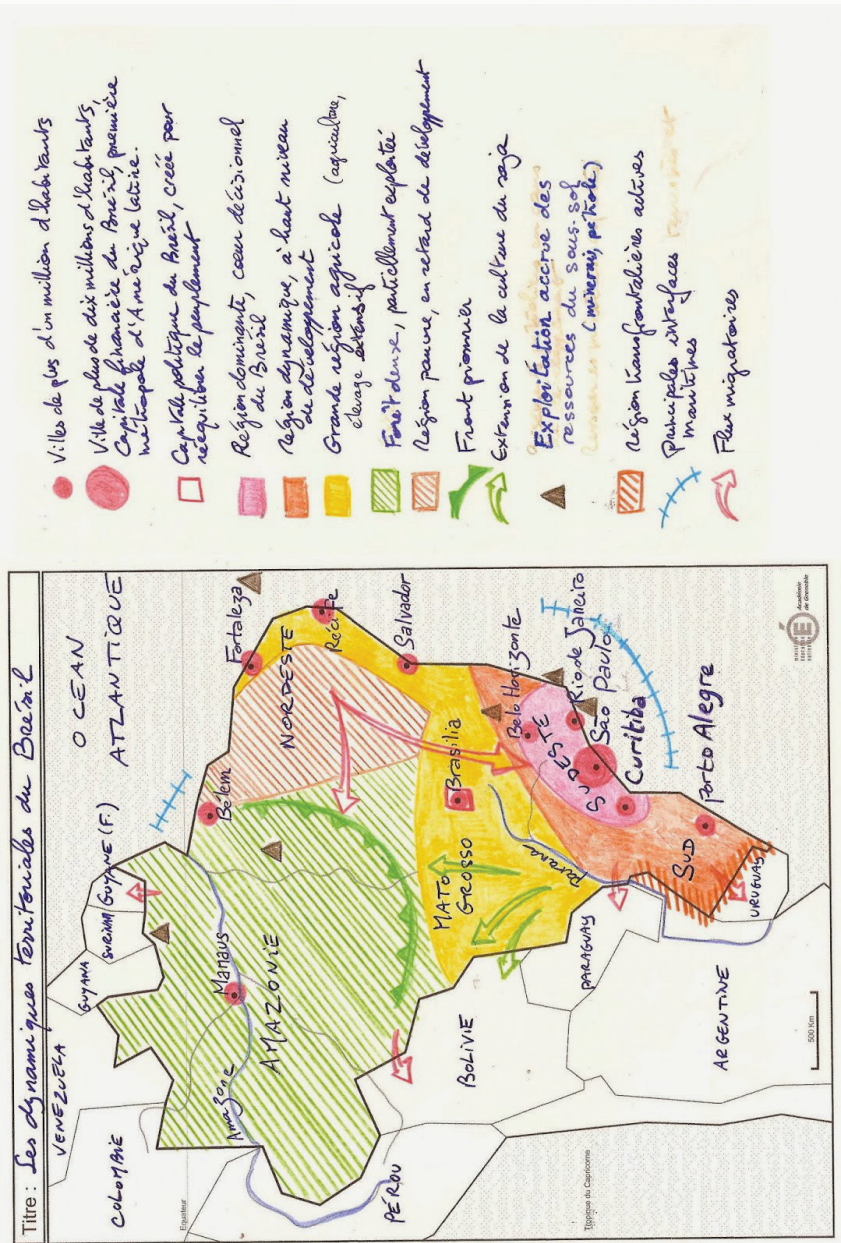 Titre : Les dynamiques territoriales du Brésil
VENEZUELA
GUYANA
SURINAM
GUYANE (F.)
OCEAN
ATLANTIQUE
COLOMBIE
Equateur
Amazone
Manaus
AMAZONIE
Bélem
Fortaleza
NORDESTE
Récife
Salvador
PÉROU
BOLIVIE
MATO
GROSSO
Brasilia
Belo Horizonte
SUDESTE
Rio de Janeiro
São Paulo
Curitiba
Paraná
PARAGUAY
SUD
Porto Alegre
URUGUAY
ARGENTINE
Tropique du Capricorne
500 Km
Académie
de Grenoble
Villes de plus d'un million d'habitants
Ville de plus de dix millions d'habitants,
Capitale financière du Brésil, première
métropole d'Amérique latine.
Capitale politique du Brésil, créée pour
rééquilibrer le peuplement
Région dominante, coeur décisionnel
du Brésil
Région dynamique, à haut niveau
de développement
Grande région agricole (agriculture,
élevage extensif
Forêt dense, partiellement exploité
Région pauvre, en retard de développement
Front pionnier
Extension de la culture du soja
Exploitation accrue des
ressources du sous-sol
(minerais, pétrole)
Région transfrontalières actives
Principales interfaces
maritimes
Flux migratoires